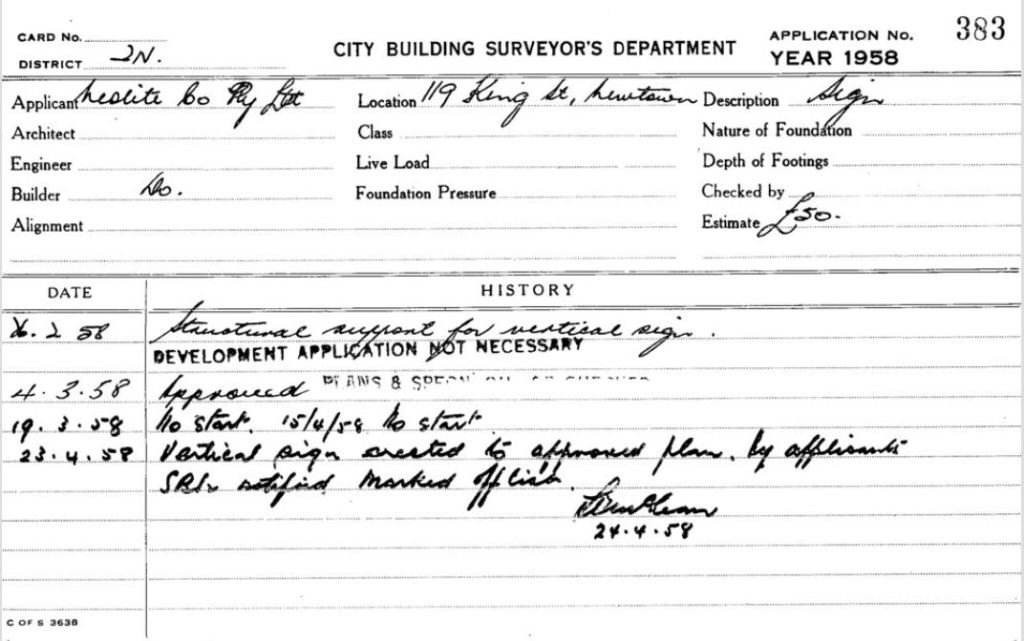 CARD No.
CITY BUILDING SURVEYOR'S DEPARTMENT
APPLICATION No. 383
DISTRICT 2N.
YEAR 1958
Applicant Neolite Co Pty Ltd Location 119 King St, Newtown Description Sign
Architect Class Nature of Foundation
Engineer Live Load Depth of Footings
Builder Do. Foundation Pressure Checked by
Alignment Estimate £50.
DATE HISTORY
26.2 58 Structural support for vertical sign.
DEVELOPMENT APPLICATION NOT NECESSARY
4.3.58 Approved PLANS & SPECN
19.3.58 No start. 15/4/58 No start
23.4.58 Vertical sign erected to approved plan. by applicants
notified Marked off list.
24.4.58
C OF S 3638